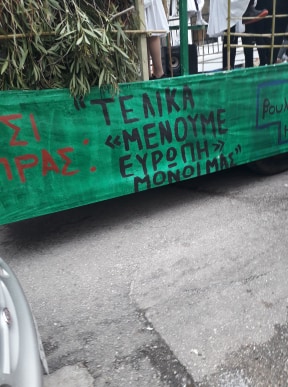 ΣΙ
ΠΡΑΣ:
"ΤΕΛΙΚΑ
«ΜΕΝΟΥΜΕ
ΕΥΡΩΠΗ»
ΜΟΝΟΙ ΜΑΣ"
βουλ